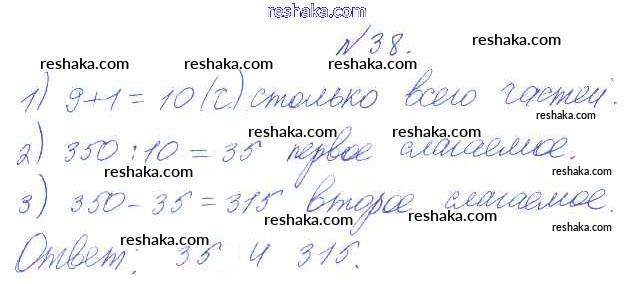 reshaka.com
№38.
reshaka.com
reshaka.com reshaka.com reshaka.com
1) 9+1=10(ч.) столько всего частей.
reshaka.com reshaka.com
2) 350:10=35 первое слагаемое.
reshaka.com reshaka.com reshaka.com
3) 350-35=315 второе слагаемое.
reshaka.com reshaka.com reshaka.com
Ответ: 35 и 315.
reshaka.com